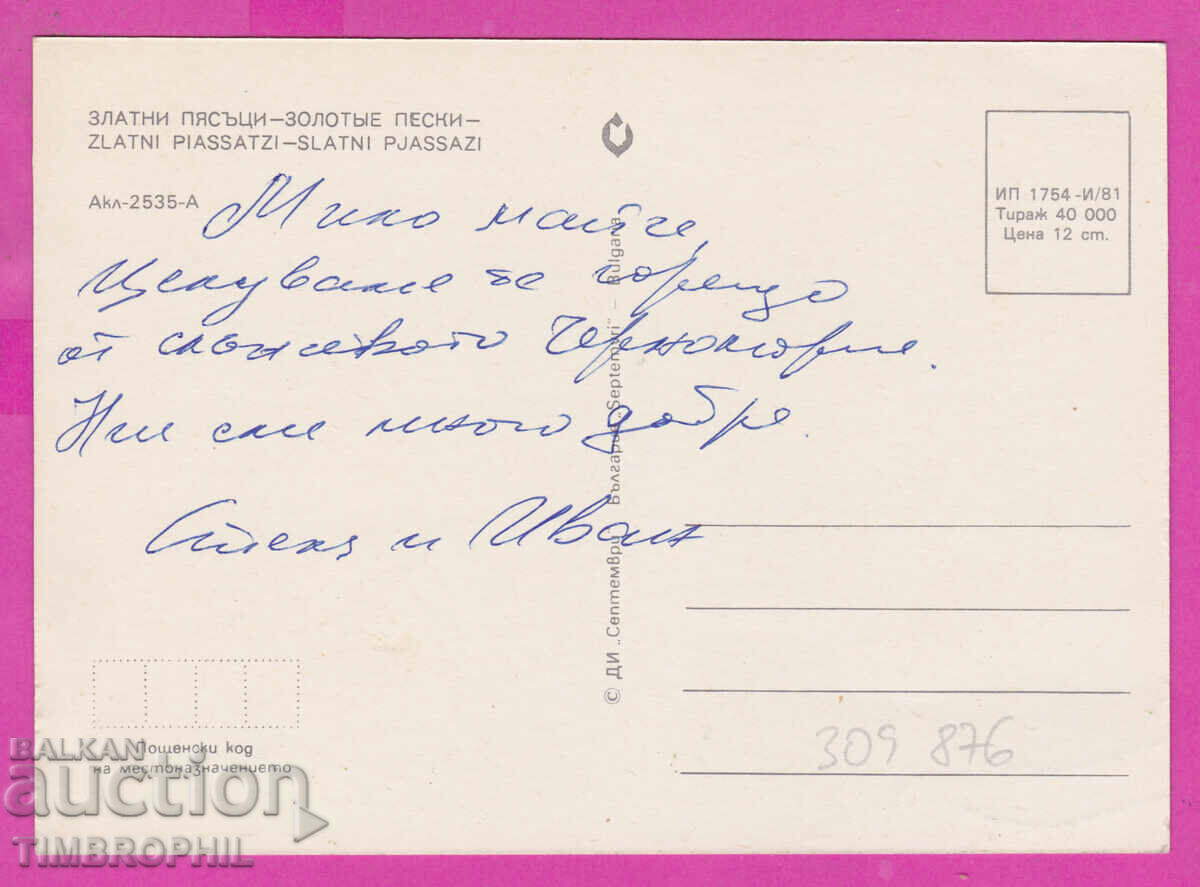 ЗЛАТНИ ПЯСЪЦИ—ЗОЛОТЫЕ ПЕСКИ—
ZLATNI PIASSATZI—SLATNI PJASSAZI
Акл-2535-А
ИП 1754-И/81
Тираж 40 000
Цена 12 ст.
Мило майче,
Целуваме те горещо
от слънчевото Черноморие.
Ние сме много добре.
и Иван
© ДИ „Септември" България „Septemvri" – Bulgaria
Пощенски код
на местоназначението
309 876
BALKAN
auction
TIMBROPHIL